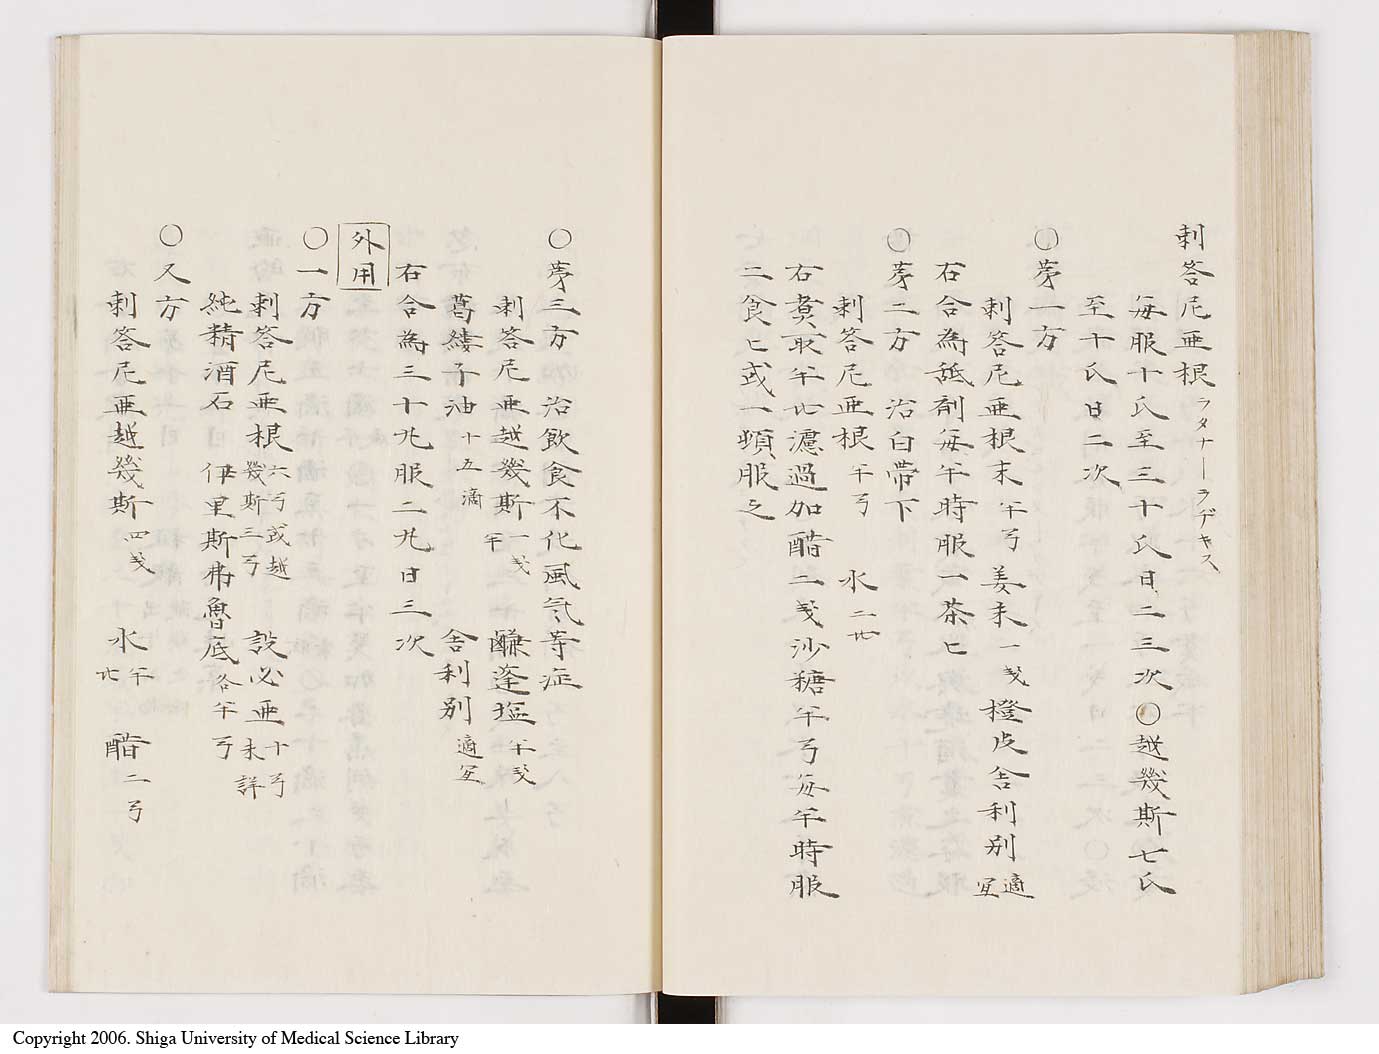 剌答尼亜根 ラタナーラデキス
毎服十氏至三十氏日二三次〇越幾斯七氏
至十氏日二次
〇苐一方
剌答尼亜根末 半弓 姜末 一戔 橙皮舎利別 適宜
右合為舐剤毎半時服一茶匕
〇苐二方 治白帯下
剌答尼亜根 半弓 水 二㪷
右煑取半㪷濾過加醋二戔沙糖半弓毎半時服
二食匕或一頓服之
〇苐三方 治飲食不化風気等症
剌答尼亜越幾斯 一戔半 鹻蓬塩 半戔
葛縷子油 十五滴 舎利別 適宜
右合為三十丸服二丸日三次
外用
〇一方
剌答尼亜根 六弓或越幾斯三弓 設必亜 十弓未詳
純精酒石 伊里斯弗魯底 各半弓
〇又方
剌答尼亜越幾斯 四戔 水 半㪷 醋 二弓
Copyright 2006. Shiga University of Medical Science Library